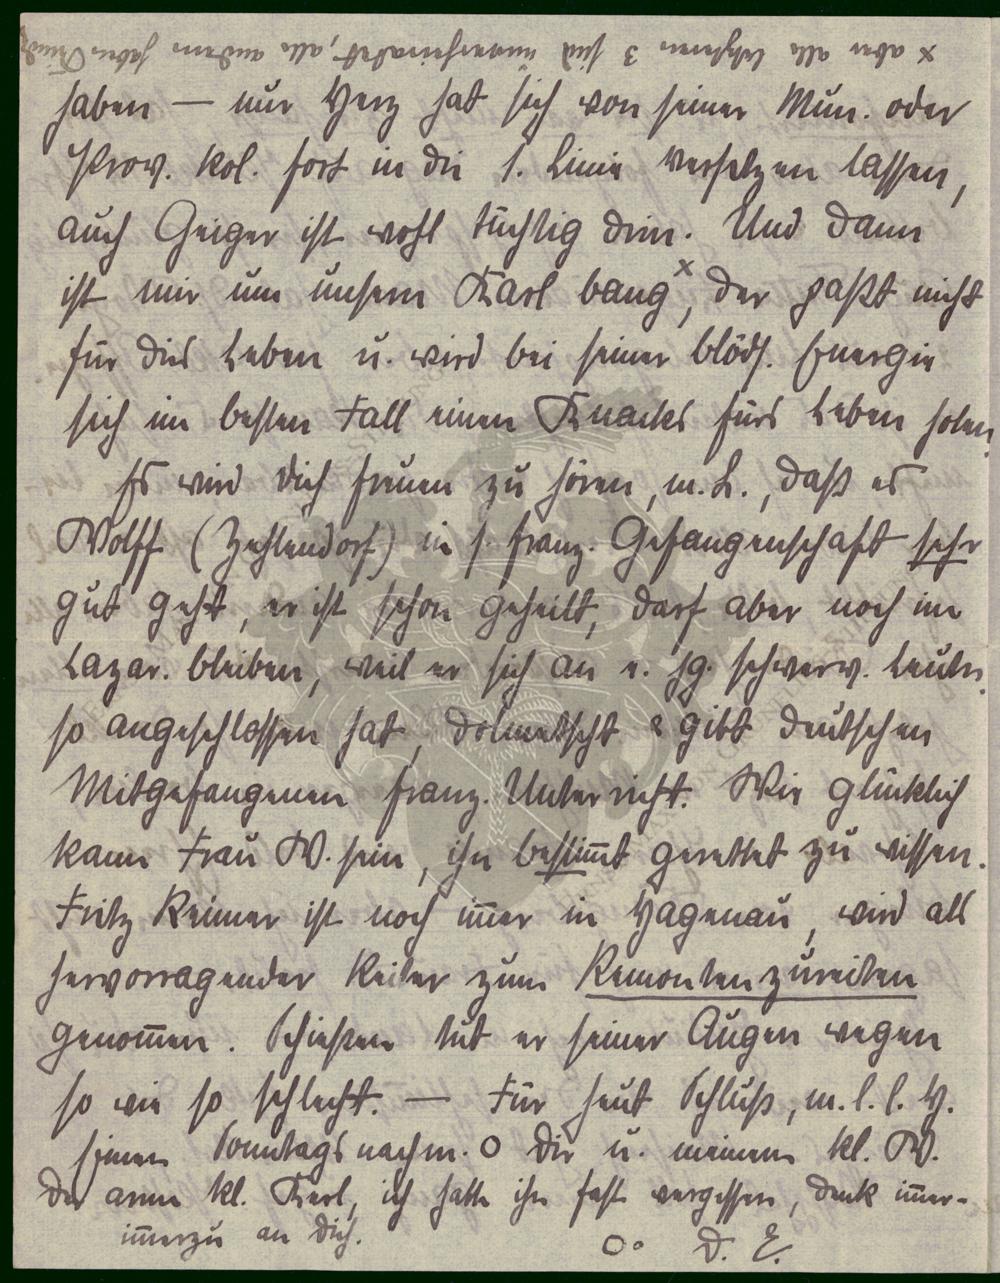 x aber alle letzteren 3 sind unverheiratet, alle andern haben Kind
haben — nur Herz hat sich von seiner Mun. oder
Prov. Kol. fort in die 1. Linie versetzen lassen,
auch Geiger ist wohl tüchtig drin. Und dann
ist mir um unsern Karl bang x, der paßt nicht
für dies Leben u. wird bei seiner blöds. Energie
sich im besten Fall einen Knacks fürs Leben holen.
Es wird Dich freuen zu hören, m. L., daß es
Wolff (Zehlendorf) in s. franz. Gefangenschaft sehr
gut geht, er ist schon geheilt, darf aber noch im
Lazar. bleiben, weil er sich an e. jg. schwerv. Leutn.
so angeschlossen hat, dolmetscht & gibt deutschen
Mitgefangenen franz. Unterricht. Wie glücklich
kann Frau W. sein, ihn bestimmt gerettet zu wissen.
Fritz Reimer ist noch immer in Hagenau, wird als
hervorragender Reiter zum Remontenzureiten
genommen. Schießen tut er seiner Augen wegen
so wie so schlecht. — Für heut Schluß, m. l. l. H.
Einen Sonntagsnachm. O Dir u. meinem kl. W.
Der arme kl. Kerl, ich hatte ihn fast vergessen, denk immer-
immerzu an Dich.
O o D. E.